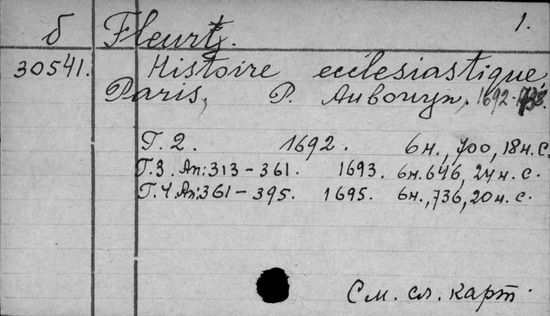 б Fleury. 1.
30541. Histoire ecclésiastique.
Paris, P. Aubouyn, 1692-1738.
Т. 2. 1692. 6 н., 700, 18 н. с.
Т. 3. An: 313-361. 1693. 6 н. 646, 24 н. с.
Т. 4 An: 361-395. 1695. 6 н., 736, 20 н. с.
См. сл. карт.